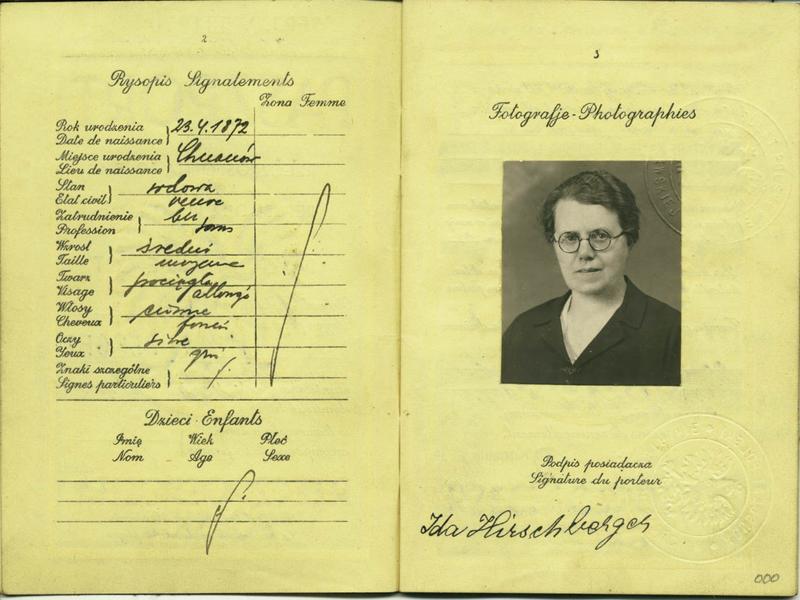 2
Rysopis Signalements
Żona Femme
Rok urodzenia
Date de naissance
23.4.1872
Miejsce urodzenia
Lieu de naissance
Chrzanów
Stan
Etat civil
wdowa
veuve
Zatrudnienie
Profession
bez
sans
Wzrost
Taille
średni
moyenne
Twarz
Visage
pociągła
allongé
Włosy
Cheveux
ciemne
foncés
Oczy
Yeux
siwe
gris
Znaki szczególne
Signes particuliers
Dzieci - Enfants
Imię Wiek Płeć
Nom Age Sexe
3
Fotografje - Photographies
Podpis posiadacza
Signature du porteur
Ida Hirschberger
000